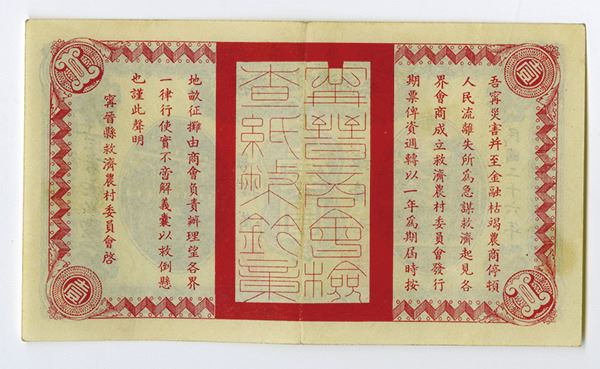 壹
壹
吾寧災害并至金融枯竭農商停頓
人民流離失所爲急謀救濟起見各
界會商成立救濟農村委員會發行
期票俾資週轉以一年爲期屆時按
寧晉商會檢
地畝征攤由商會負責辦理望各界
一律行使實不啻解義囊以救倒懸
也謹此聲明
寧晉縣救濟農村委員會啓
壹
壹